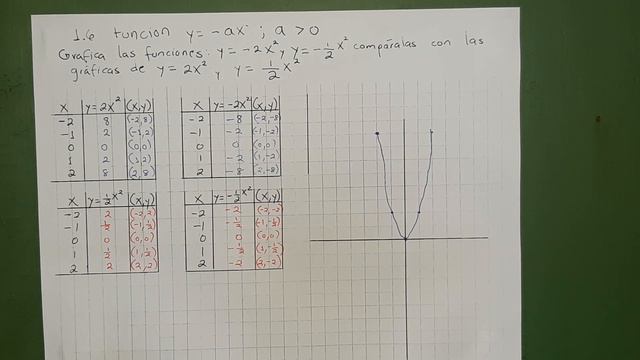 1.6 Función y = -ax² ; a > 0
Grafica las funciones: y = -2x², y = -½x² compáralas con las
gráficas de y = 2x², y = ½x²
x y=2x² (x,y)
-2 8 (-2,8)
-1 2 (-1,2)
0 0 (0,0)
1 2 (1,2)
2 8 (2,8)
x y=-2x² (x,y)
-2 -8 (-2,-8)
-1 -2 (-1,-2)
0 0 (0,0)
1 -2 (1,-2)
2 -8 (2,-8)
x y=½x² (x,y)
-2 2 (-2,2)
-1 ½ (-1,½)
0 0 (0,0)
1 ½ (1,½)
2 2 (2,2)
x y=-½x² (x,y)
-2 -2 (-2,-2)
-1 -½ (-1,-½)
0 0 (0,0)
1 -½ (1,-½)
2 -2 (2,-2)